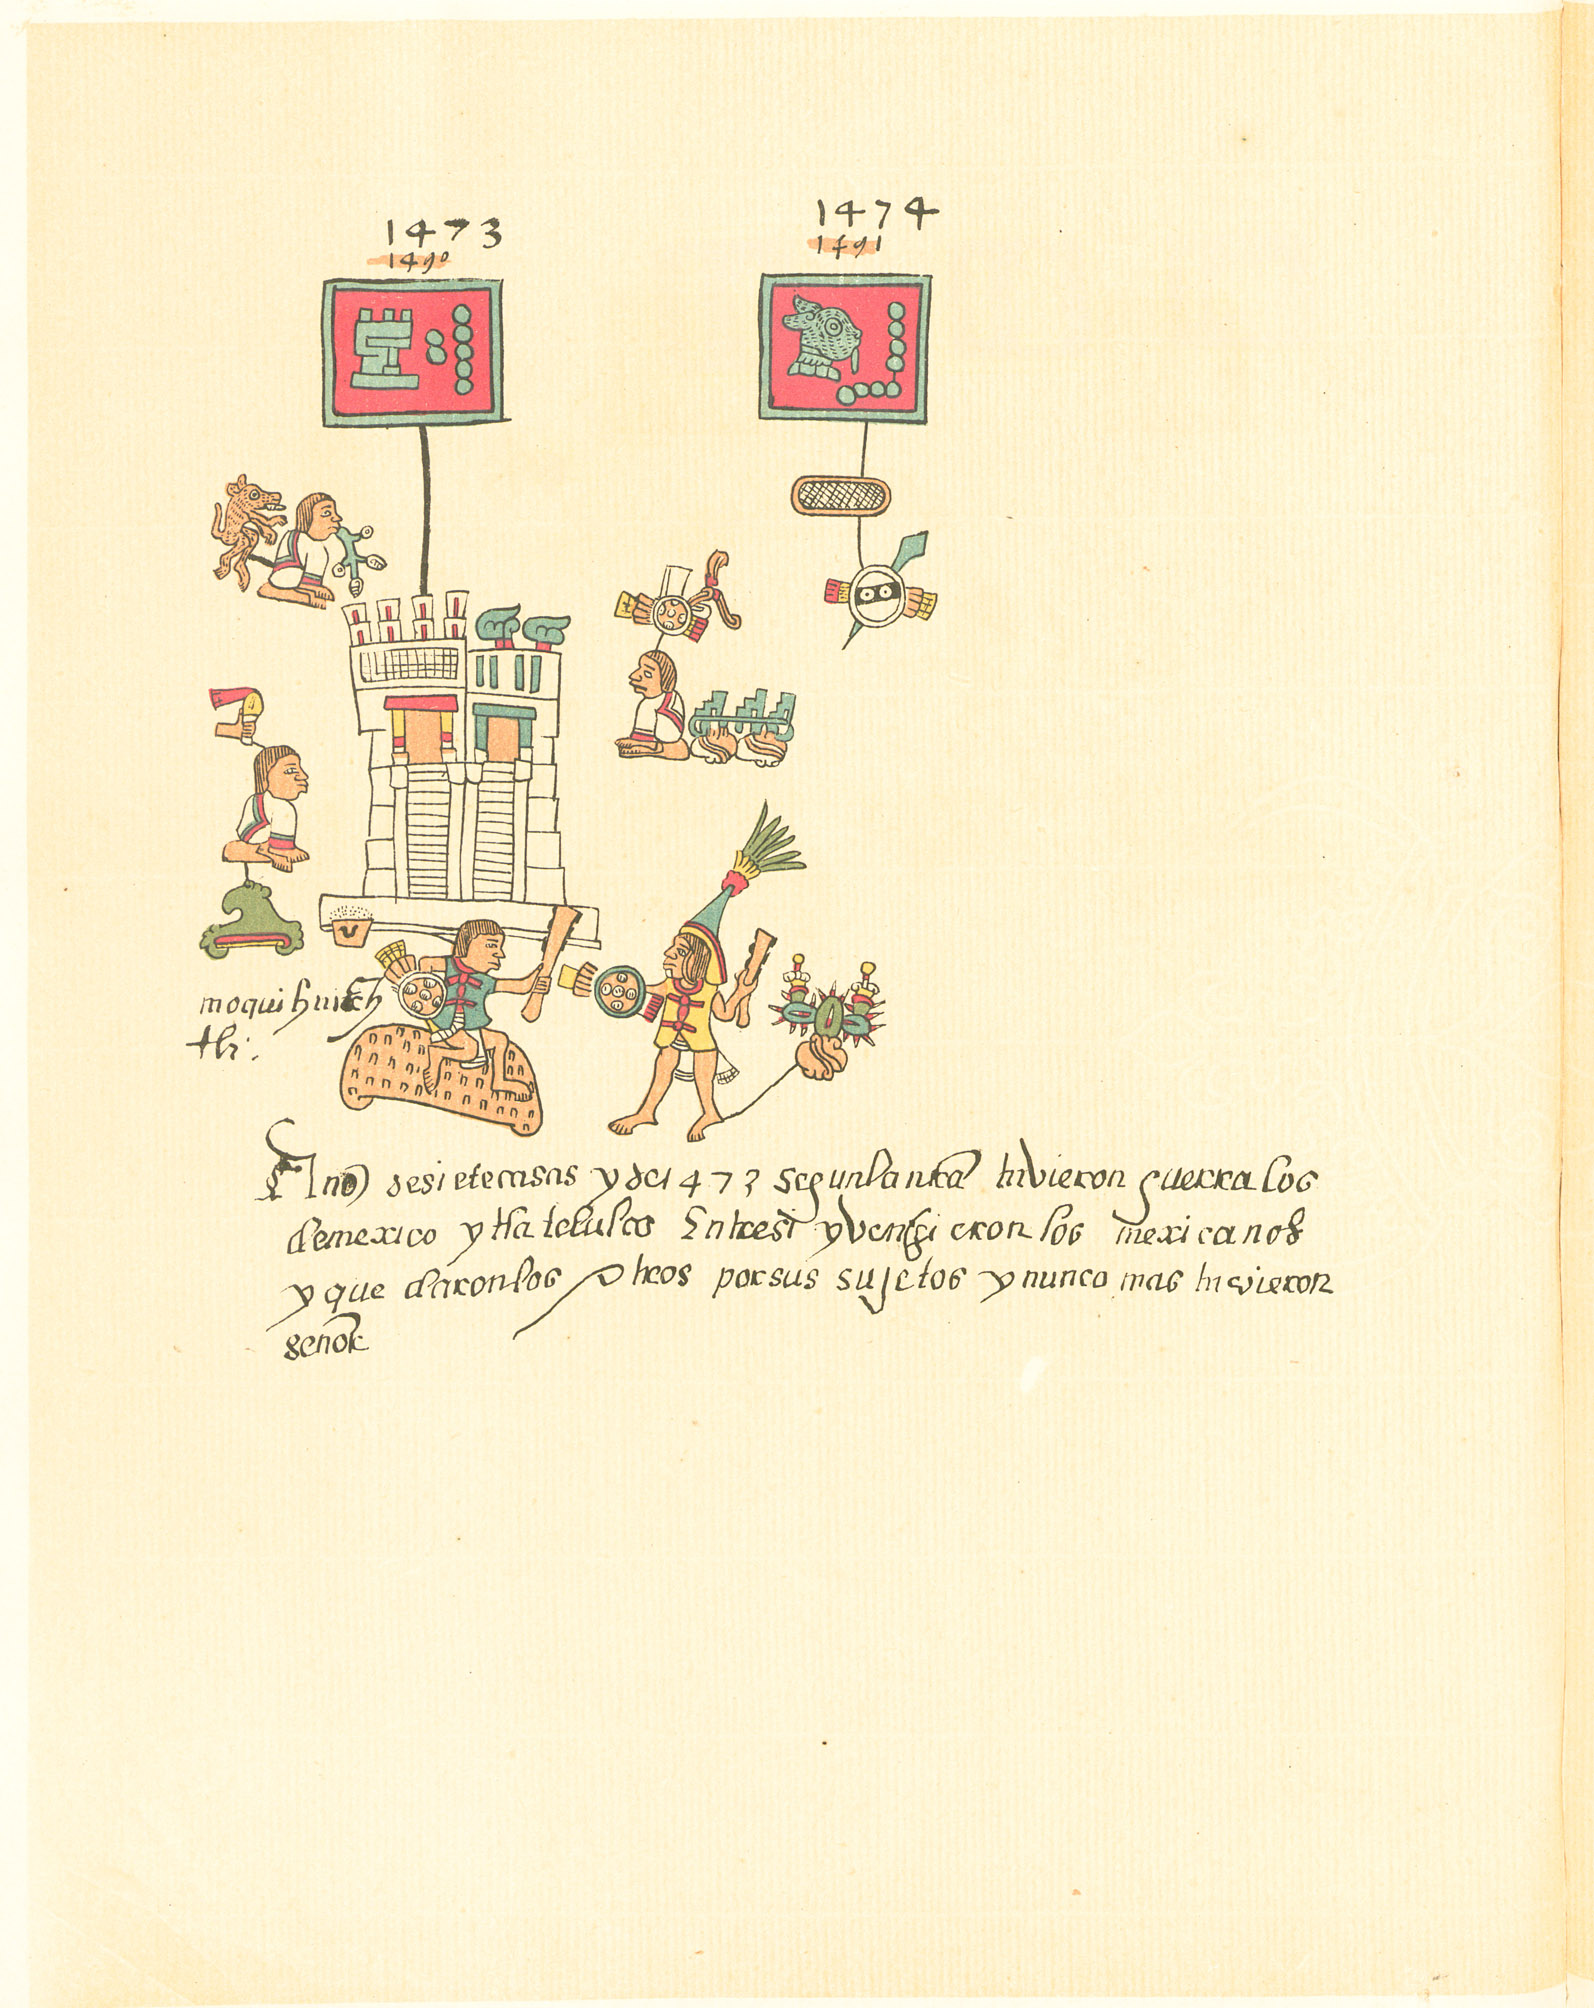 1473
1490
1474
1491
moquihuich
tli.
Año de siete casas y de 1473 segun la nra hivieron guerra los
de mexico y tlatelulco Entresi y vençieron los mexicanos
y quedaron los otros por sus sujetos y nunca mas hivieron
señor